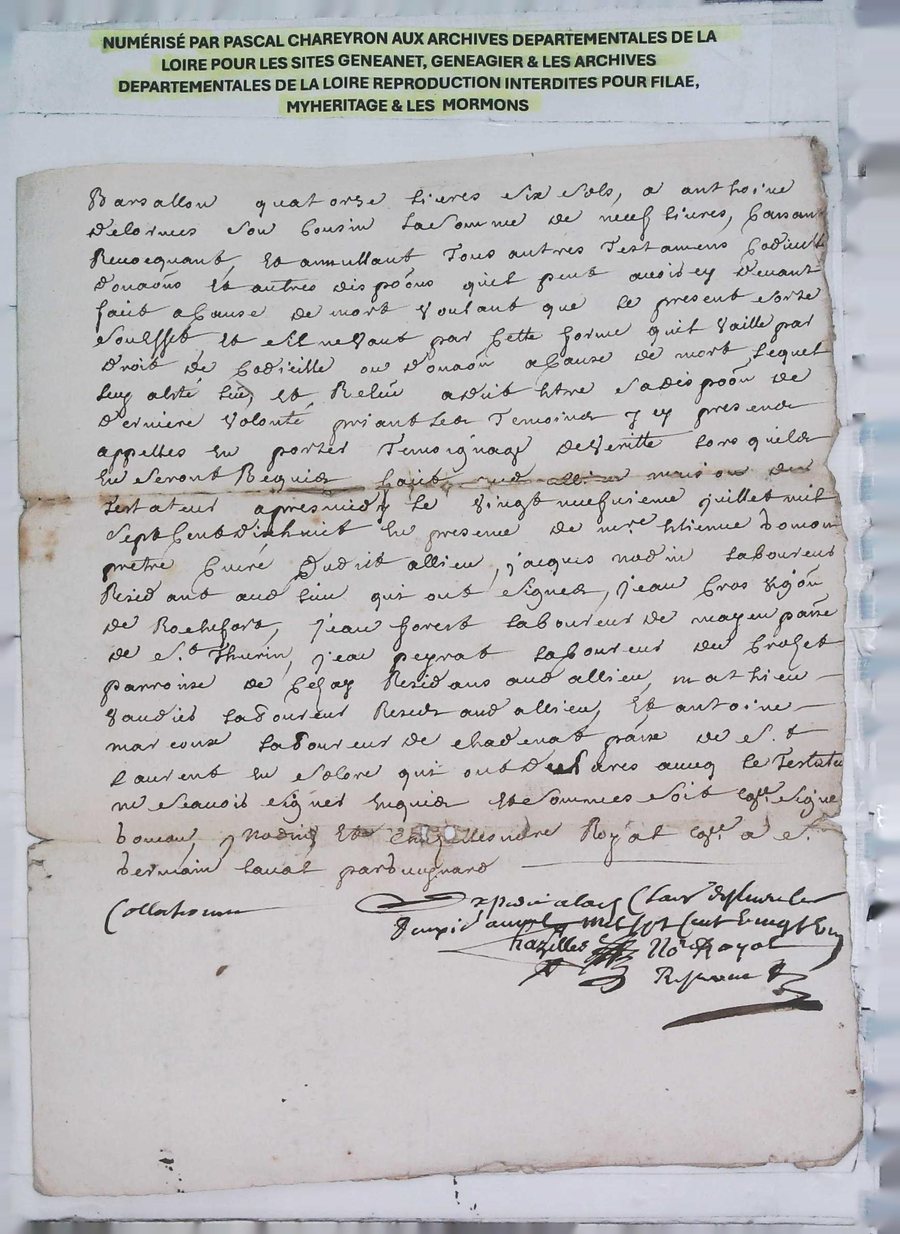 NUMÉRISÉ PAR PASCAL CHAREYRON AUX ARCHIVES DEPARTEMENTALES DE LA
LOIRE POUR LES SITES GENEANET, GENEAGIER & LES ARCHIVES
DEPARTEMENTALES DE LA LOIRE REPRODUCTION INTERDITES POUR FILAE,
MYHERITAGE & LES MORMONS
Barsallon quatorze livres six sols, a anthoine
delormes son Cousin la somme de neuf livres, Cassant
Revocquant, Et annullant Tous autres Testamens Codicil
donaõns Et autres dispõons quil peut avoir cy devant
fait a Cause de mort Voulant que le present sorte
Et sil ne Vaut par Cette forme quil Vaille par
droit de Codicille ou donaõn a Cause de mort, lequel
luy a esté leu, Et Releu a dit estre sa dispõon de
derniere Volonté priant les Temoins y cy presens
appelles En porter Temoignage de Veritté lorsquils
En seront Requis fait aud allieu maison du
Testateur apres midy le Vingt neufvieme juillet mil
Sept Cent dixhuit En presence de mre Etienne
prêtre Curé Dudit allieu, jacques nodin laboureur
Residant aud lieu qui ont signes, jean Gros vigõn
de Rochefort, jean forest laboureur de mayen parre
de St Thurin, jean peyrat laboureur du Crozet
parroisse de Cezay Residans aud allieu, mathieu
laboureur Resid aud allieu, Et antoine
marcoux laboureur de Chadenat parre de St
Laurent En solore qui ont declares avecq le Testate
ne scavoir signer Enquis Et sommes soit signe
nodin, Et Chazelles nore Royal a St
Germain Laval
Collationne
Expedié a
mil sept Cent Vingt
Chazelles No.re Royal